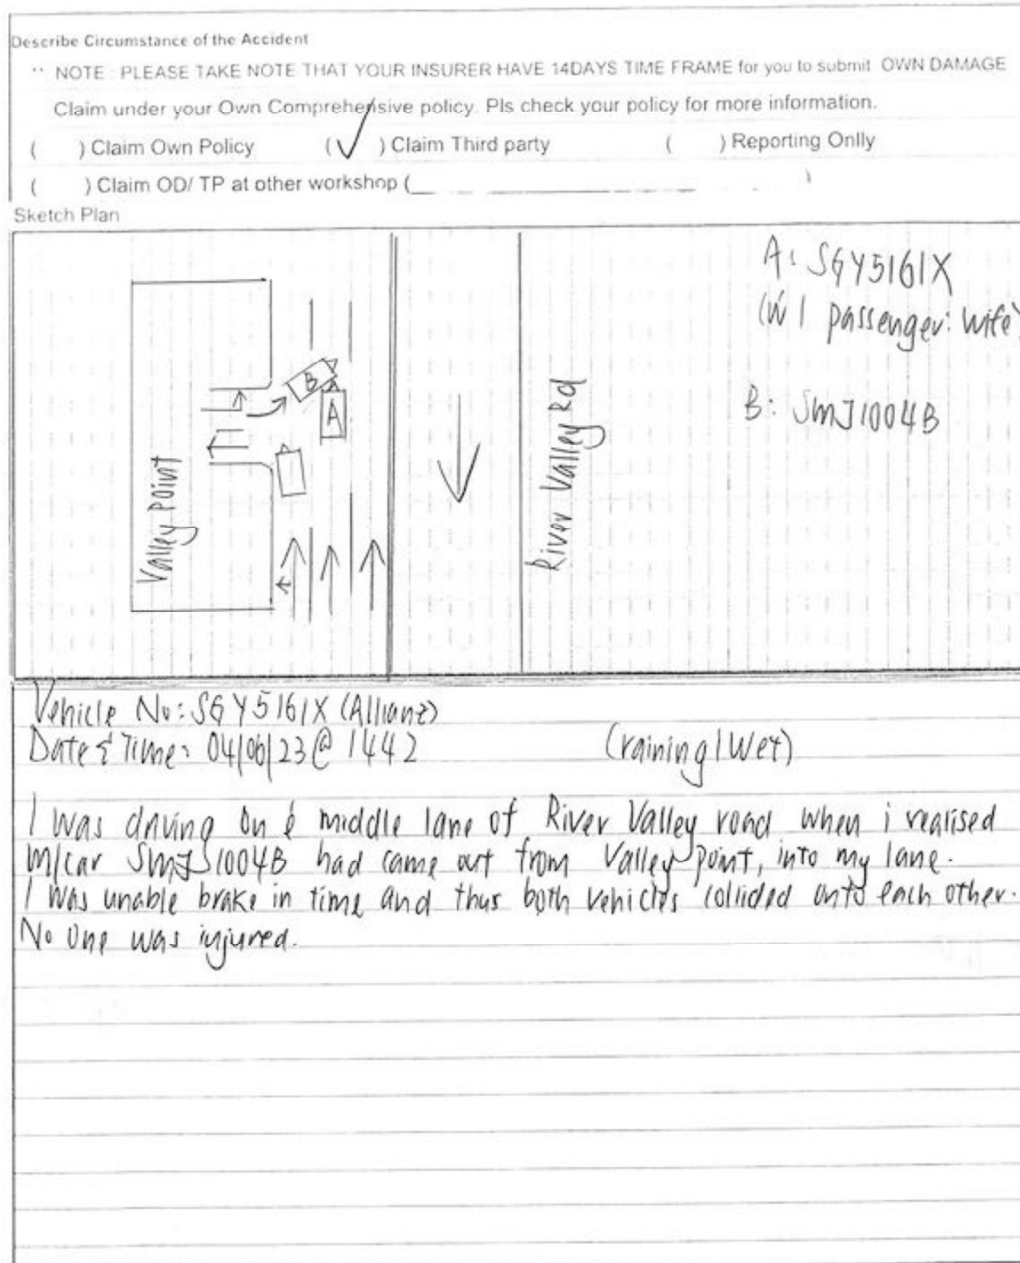 Describe Circumstance of the Accident
** NOTE : PLEASE TAKE NOTE THAT YOUR INSURER HAVE 14DAYS TIME FRAME for you to submit OWN DAMAGE
Claim under your Own Comprehensive policy. Pls check your policy for more information.
( ) Claim Own Policy (✓) Claim Third party ( ) Reporting Onlly
( ) Claim OD/ TP at other workshop (____________________)
Sketch Plan
A: SGY5161X
(W 1 passenger: wife)
B: SMJ1004B
B
A
Valley Point
River Valley Rd
Vehicle No: SGY5161X (Allianz)
Date & Time: 04/06/23 @ 1442 (raining/Wet)
I was driving on middle lane of River Valley road when i realised
m/car SMJ1004B had came out from Valley Point, into my lane.
I was unable brake in time and thus both vehicles collided onto each other.
No one was injured.